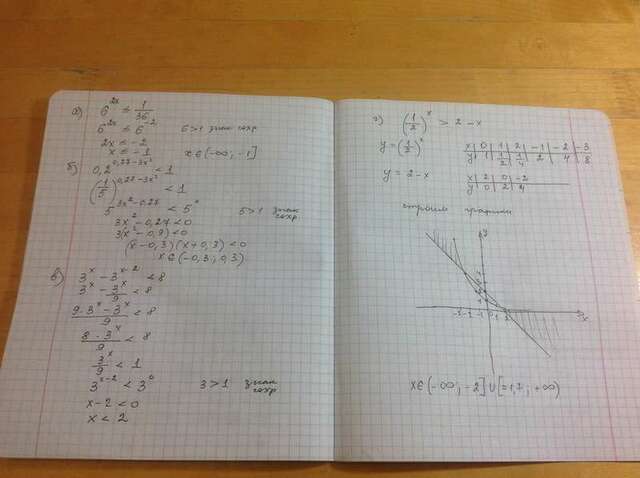 а) 6^2x ≤ 1/36
6^2x ≤ 6^-2 6>1 знак сохр
2x ≤ -2
x ≤ -1 x∈(-∞; -1]
б) 0,2^0,27-3x² < 1
(1/5)^0,27-3x² < 1
5^3x²-0,27 < 5^0 5>1 знак сохр
3x²-0,27<0
(x-0,3)(x+0,3)<0
x∈(-0,3; 0,3)
в) 3^x - 3^x-2 < 8
3^x - 3^x/9 < 8
9·3^x-3^x/9 < 8
8·3^x/9 < 8
3^x/9 < 1
3^x-2 < 3^0 3>1 знак сохр
x-2<0
x < 2
г) (1/2)^x > 2-x
y=(1/2)^x x 0 1 2 -1 -2 -3
y 1 1/2 1/4 2 4 8
y = 2-x x 2 0 -2
y 0 2 4
строим графики
y
-3 -2 -1 0 1 2 x